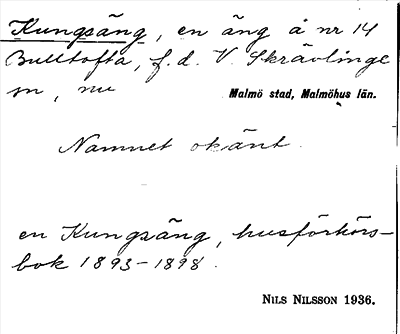 Kungsäng, en äng å nr 14
Bulltofta, f.d. V. Skrävlinge
sn, nu Malmö stad, Malmöhus län.
Namnet okänt.
en Kungsäng, husförhörs-
bok 1893-1898.
NILS NILSSON 1936.